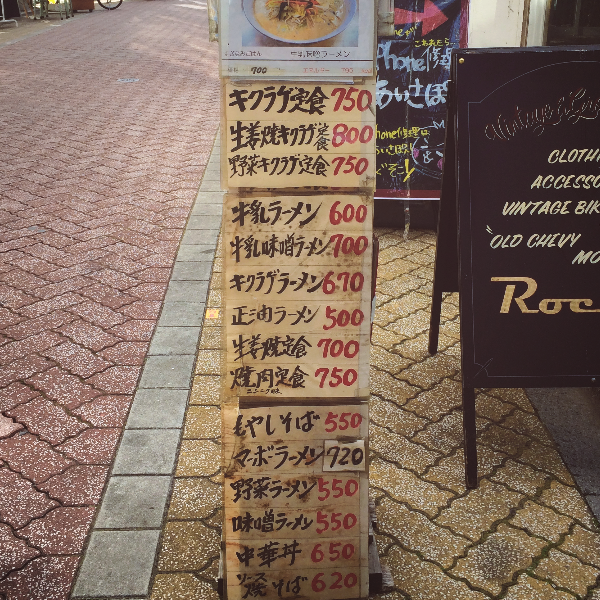 牛乳味噌ラーメン
700
キクラゲ定食 750
生姜焼キクラゲ定食 800
野菜キクラゲ定食 750
牛乳ラーメン 600
牛乳味噌ラーメン 700
キクラゲラーメン 670
正油ラーメン 500
生姜焼定食 700
焼肉定食 750
もやしそば 550
マーボーラーメン 720
野菜ラーメン 550
味噌ラーメン 550
中華丼 650
ソース焼そば 620
iPhone修
あいさぽ
CLOTHI
ACCESSO
VINTAGE BIK
"OLD CHEVY
MO
Roc